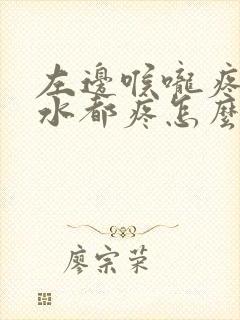 左邊喉嚨疼
水都疼怎麼
廖宗荣